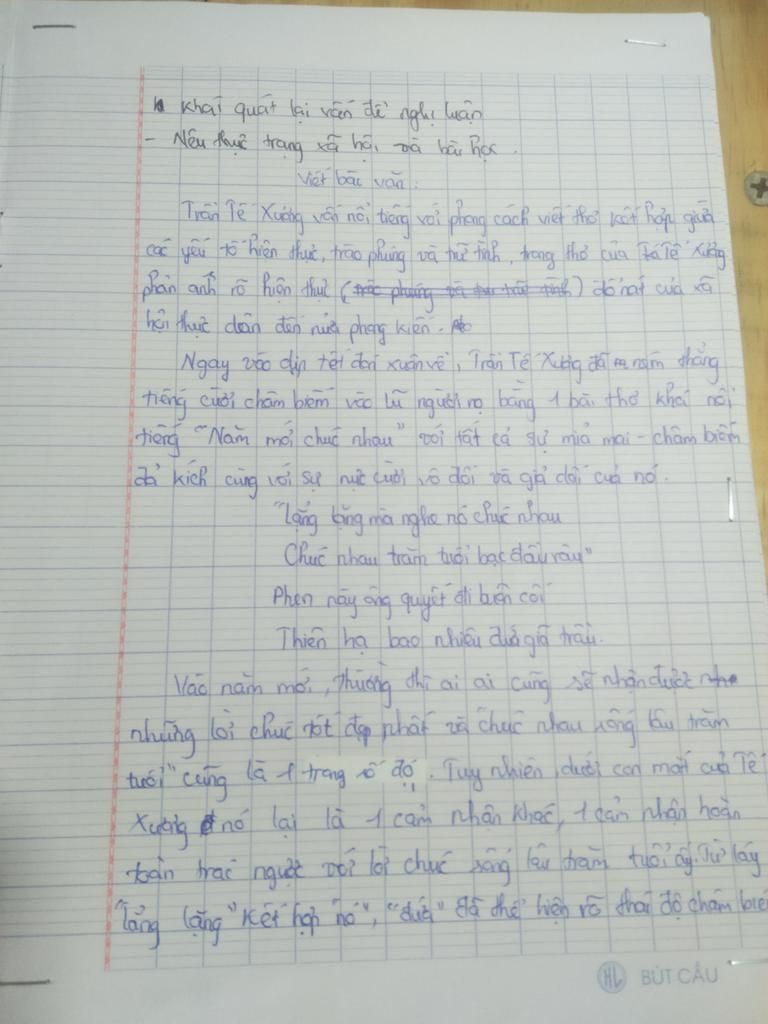 Khái quát lại vấn đề nghị luận
- Nêu thực trạng xã hội và bài học.
Viết bác văn:
Trần Tế Xương vốn nổi tiếng với phong cách viết thơ kết hợp giữa
các yếu tố hiện thực, trào phúng và trữ tình, trong thơ của Tế Xương
phản ánh rõ hiện thực đổ nát của xã
hội thực dân đến nửa phong kiến.
Ngay vào dịp tết đón xuân về, Trần Tế Xương đã ném thẳng
tiếng cười châm biếm vào lũ người nọ bằng 1 bài thơ khá nổi
tiếng "Năm mới chúc nhau" với tất cả sự mỉa mai - châm biếm
đả kích cùng với sự nực cười vô đối và giả dối của nó.
"Lẳng lặng mà nghe nó chúc nhau
Chúc nhau trăm tuổi bạc đầu râu"
Phen này ông quyết đi buôn cối
Thiên hạ bao nhiêu đứa giã trầu.
Vào năm mới, thường thì ai ai cũng sẽ nhận được
những lời chúc tốt đẹp nhất và "chúc nhau sống lâu trăm
tuổi" cũng là 1 trong số đó. Tuy nhiên, dưới con mắt của Tế
Xương nó lại là 1 cảm nhận khác, 1 cảm nhận hoàn
toàn trái ngược với lời chúc sống lâu trăm tuổi ấy. Từ láy
"lẳng lặng" kết hợp "nó", "đứa" đã thể hiện rõ thái độ châm biế
HL BÚT CẦU